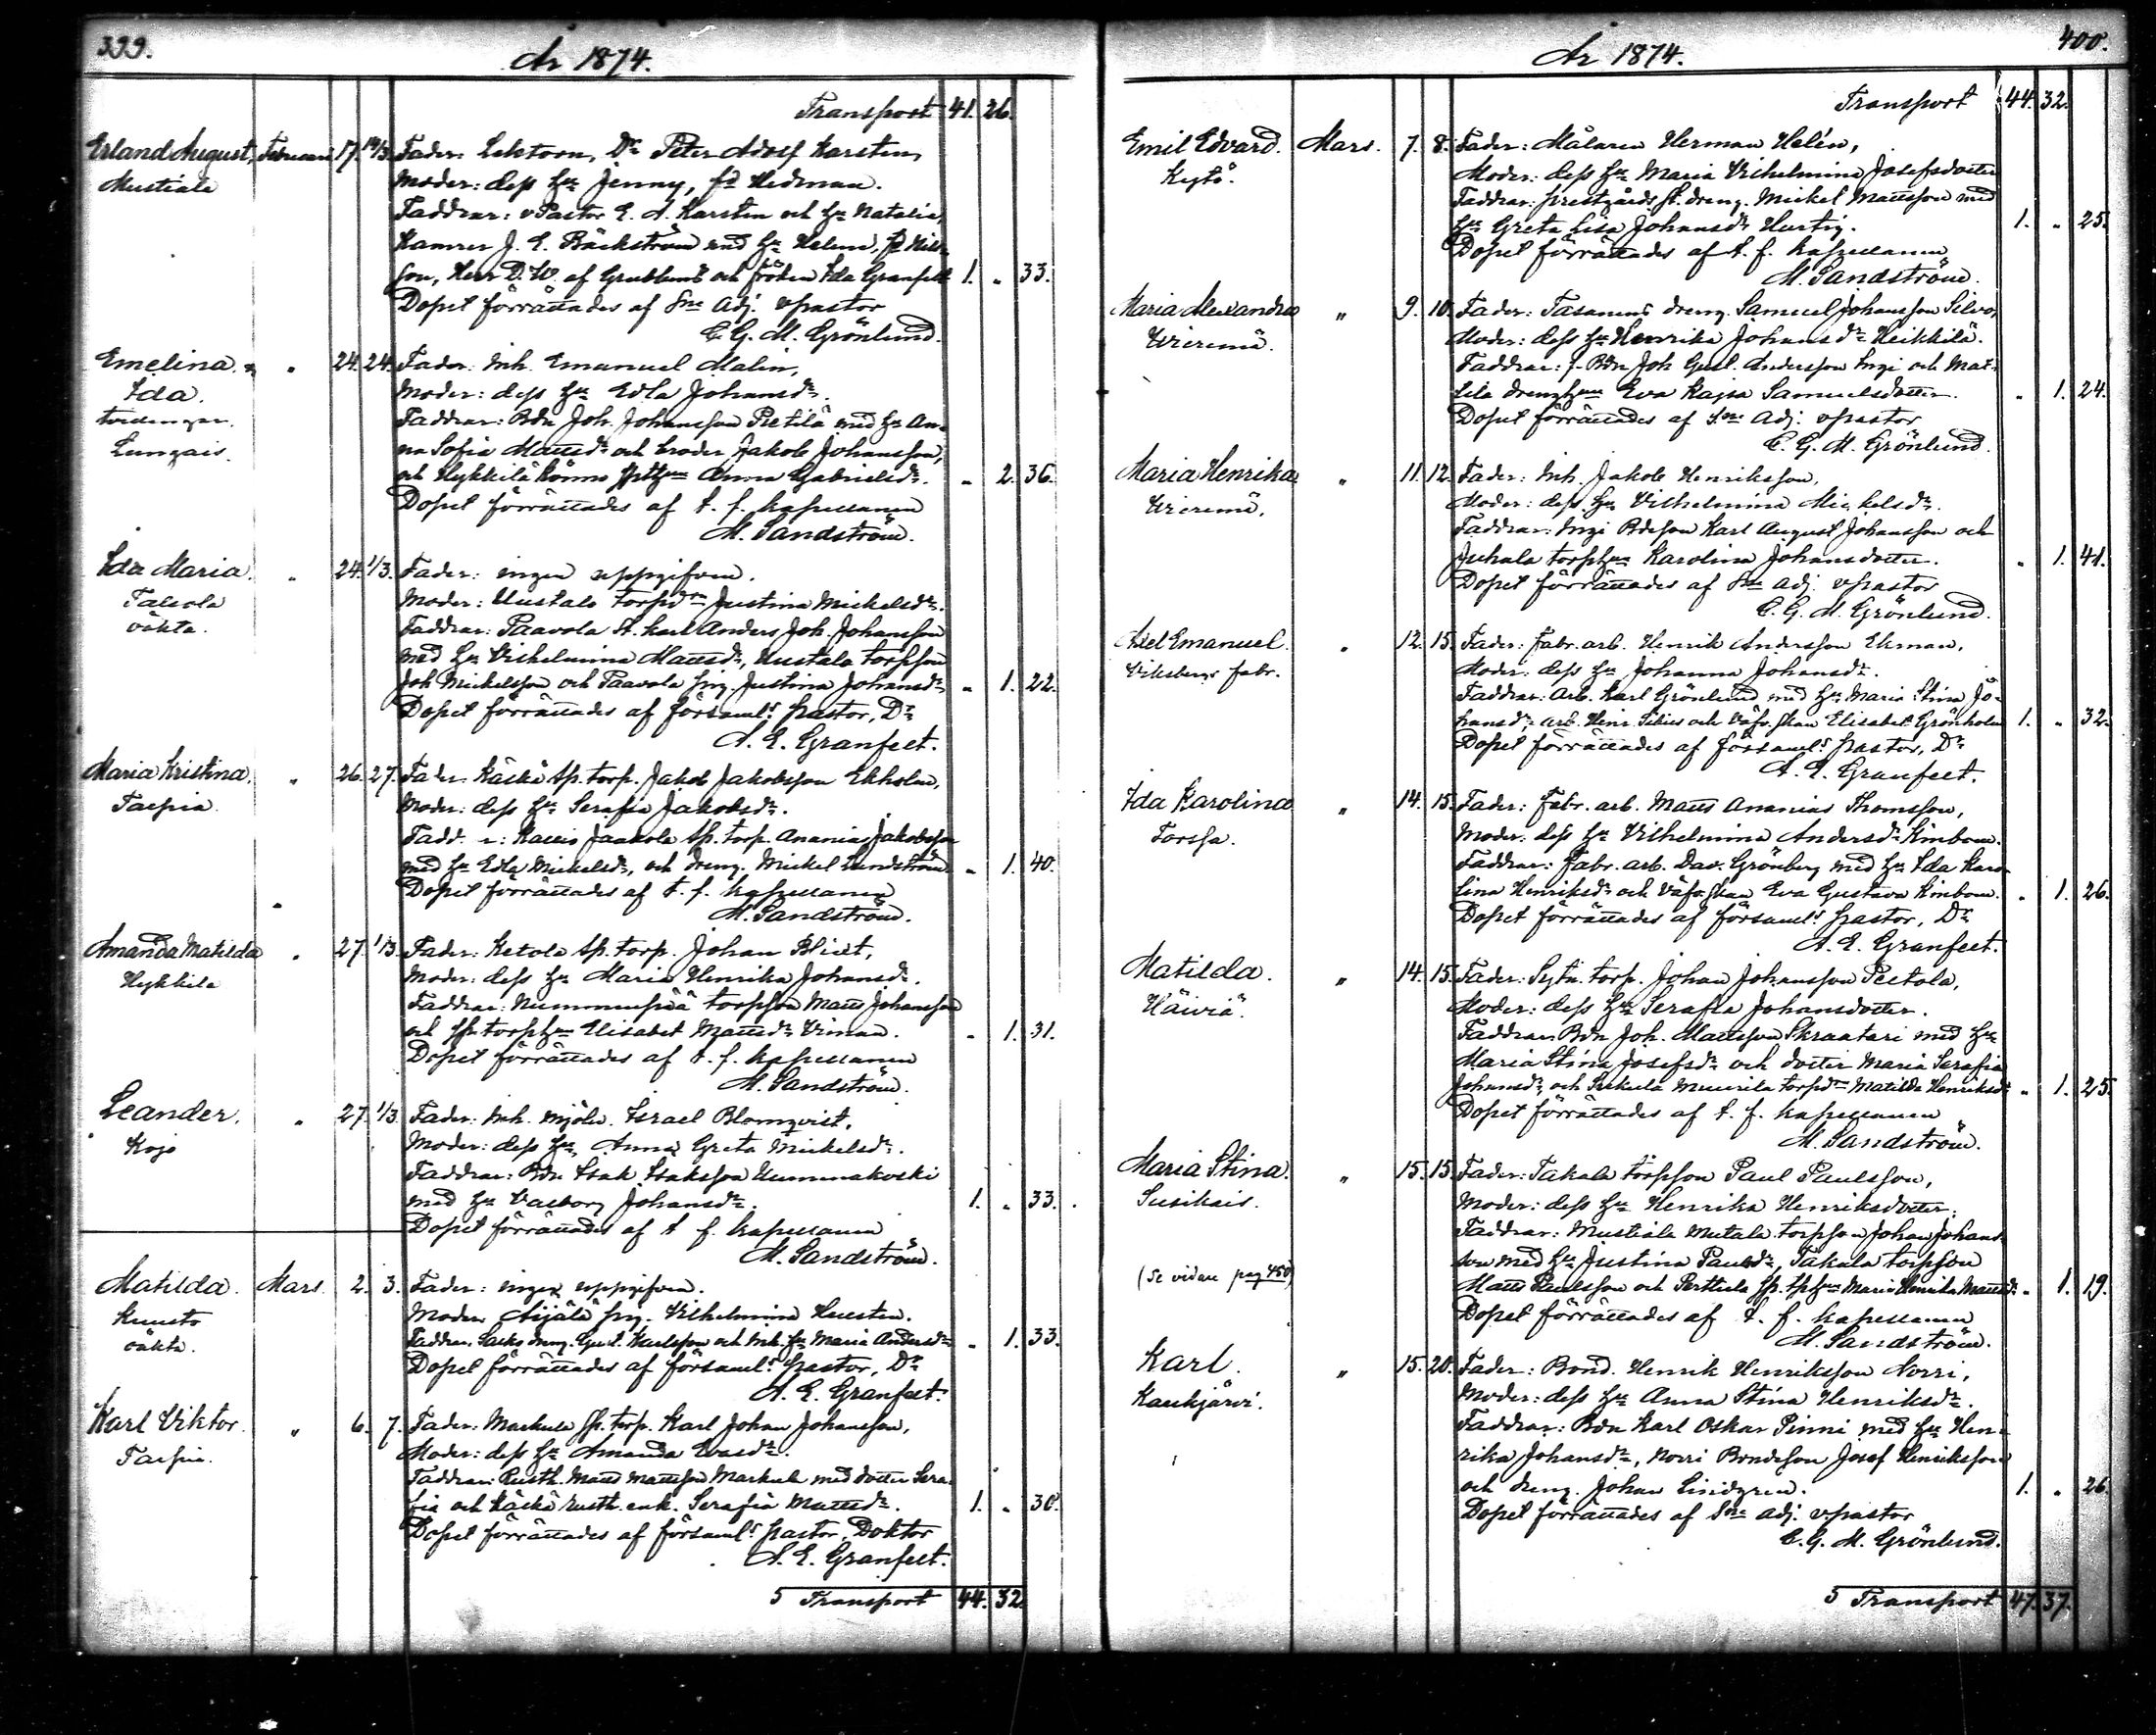 399.
År 1874.
Transport 41. 26.
Erland August, Februari 17. 19/3. Fader: Lektorn, Dr Peter Adolf Karsten,
Mustiala Moder: dess hu Jenny, fd Hedman.
Faddrar: vPastor E. A. Karsten och hu Natalia,
Kamrer J. E. Bäckström med hu Helene,
son, Herr D. W. af Grubbens och fröken Ida Granfelt 1. „ 33.
Dopet förrättades af Sne Adj. vpastor
C. G. M. Grönlund.
Emelina „ 24. 24. Fader: Inh. Emanuel Malin,
Ida. Moder: dess hu Edla Johansdr.
tvillingar. Faddrar: Bdn Joh. Johansson Pietilä med hu An-
Lunzais. na Sofia Mattsdr och broder Jakob Johansson,
och Hykkilä Anna Gabrielsdr. „ 2. 36.
Dopet förrättades af t. f. kapellanen
M. Sandström.
Ida Maria. „ 24. 1/3. Fader: ingen uppgifven.
Talsola Moder: Uustalo torpdrn Justina Michelsdr.
oäkta. Faddrar: Paavola St. karl Anders Joh. Johansson
med hu Vilhelmina Mattsdr, Uustalo torpson
Joh Michelsson och Paavola pig. Justina Johansdr „ 1. 22.
Dopet förrättades af församls pastor, Dr
A. E. Granfelt.
Maria Kristina. „ 26. 27. Fader: Käskä sp. torp. Jakob Jakobsson Ekholm,
Tarpia Moder: dess hu Serafia Jakobsdr.
Fadd. r: Jaakola sp. torp. Anania Jakobsson
med hu Edla Michelsdr, och dreng. Mickel Lundström „ 1. 40.
Dopet förrättades af t. f. kapellanen
M. Sandström.
Amanda Matilda „ 27. 1/3. Fader: Ketola sp. torp. Johan Blixt,
Hykkilä Moder: dess hu Maria Henrika Johansdr.
Faddrar: Nummenpää torpson Matts Johansson
och sp. torphun Elisabet Mattsdr Viman. „ 1. 31.
Dopet förrättades af t. f. kapellanen
M. Sandström.
Leander. „ 27. 1/3. Fader: Inh. mjöln. Israel Blomqvist,
Kojo Moder: dess hu, Anna Greta Michelsdr.
Faddrar: Bdn Isak Isaksson Uummakoski
med hu Valborg Johansdr. 1. „ 33.
Dopet förrättades af t f. kapellanen
M. Sandström.
Matilda. Mars. 2. 3. Fader: ingen uppgifven.
Kuusto Moder: Äijälä pig. Vilhelmina Husten.
oäkta. Faddrar: dreng. Gust. Karlsson och Inh. hu Maria Andersdr „ 1. 33.
Dopet förrättades af församls pastor, Dr
A. E. Granfelt.
Karl Viktor. „ 6. 7. Fader: Markula sp. torp. Karl Johan Johansson,
Tarpia. Moder: dess hu Amanda Evasdr.
Faddrar: Rusth. Matts Mattsson Markula med dotter Sera-
fia och Käskä rusth. enk. Serafia Mattsdr. 1. „ 30.
Dopet förrättades af församls pastor, Doktor
A. E. Granfelt.
5 Transport 44. 32
400.
År 1874.
Transport 44. 32.
Emil Edvard. Mars. 7. 8. Fader: Målaren Herman Helén,
Kyrö. Moder: dess hu Maria Vilhelmina Josefsdotter
Faddrar: prestgårds st. dreng. Mickel Mattsson med
hu Greta Lisa Johansdr Hurtig. 1. „ 25.
Dopet förrättades af t. f. kapellanen
M. Sandström.
Maria Alexandra „ 9. 10. Fader: Tasanens dreng. Samuel Johansson Silvo,
Urierinä. Moder: dess hu Henrika Johansdr Heikkilä.
Faddrar: f. Bdn Joh Gust. Andersson Ingi och Mat-
tila drenghun Eva Kajsa Samuelsdotter. „ 1. 24.
Dopet förrättades af Sne Adj. vpastor
C. G. M. Grönlund.
Maria Henrika „ 11. 12. Fader: Inh. Jakob Henriksson,
Urierinä. Moder: dess hu Vilhelmina Michelsdr.
Faddrar: Ingi Bdeson Karl August Johansson och
Juhala torphun Karolina Johansdotter. „ 1. 41.
Dopet förrättades af Sne Adj. vpastor
C. G. M. Grönlund.
Axel Emanuel. „ 12. 15. Fader: Fabr. arb. Henrik Andersson Ekman,
Wiksbergs fabr. Moder: dess hu Johanna Johansdr.
Faddrar: Arb. Karl Grönlund med hu Maria Stina Jo-
hansdr, arb. Henr. Silius och Väfv.skan Elisabet Grönholm 1. „ 32.
Dopet förrättades af församls pastor, Dr
A. E. Granfelt.
Ida Karolina „ 14. 15. Fader: Fabr. arb. Matts Ananias Thomsson,
Forssa. Moder: dess hu Vilhelmina Andersdr Kinbom.
Faddrar: Fabr. arb. Dav. Grönberg med hu Ida Karo-
lina Henriksdr och Väfv.skan Eva Gustava Kinbom. „ 1. 26.
Dopet förrättades af församls pastor, Dr
A. E. Granfelt.
Matilda. „ 14. 15. Fader: Sytn. torp. Johan Johansson Peltola,
Häiviä. Moder: dess hu Serafia Johansdotter.
Faddrar: Bdn Joh. Mattsson Skraatari med hu
Maria Stina Josefsdr och dotter Maria Serafia
Johansdr, och torpdrn Matilda Henriksdr „ 1. 25.
Dopet förrättades af t. f. kapellanen
M. Sandström.
Maria Stina. „ 15. 15. Fader: Takala torpson Paul Paulsson,
Susikais. Moder: dess hu Henrika Henriksdotter.
Faddrar: Mustiala Mutala torpson Johan Johans-
son med hu Justina Paulsdr, Takala torpson
(se vidare pag 450) Matts Paulsson och Perttula sp. tphun Maria Henrika Mattsdr. „ 1. 19.
Dopet förrättades af t. f. kapellanen
M. Sandström.
Karl. „ 15. 20. Fader: Bond. Henrik Henriksson Norri,
Kaukjärvi. Moder: dess hu Anna Stina Henriksdr.
Faddrar: Bdn Karl Oskar Pinni med hu Hen-
rika Johansdr, Norri Bondeson Josef Henriksson
och dreng. Johan Lindgren. 1. „ 26.
Dopet förrättades af Sne Adj. vpastor
C. G. M. Grönlund.
5 Transport 47. 37.